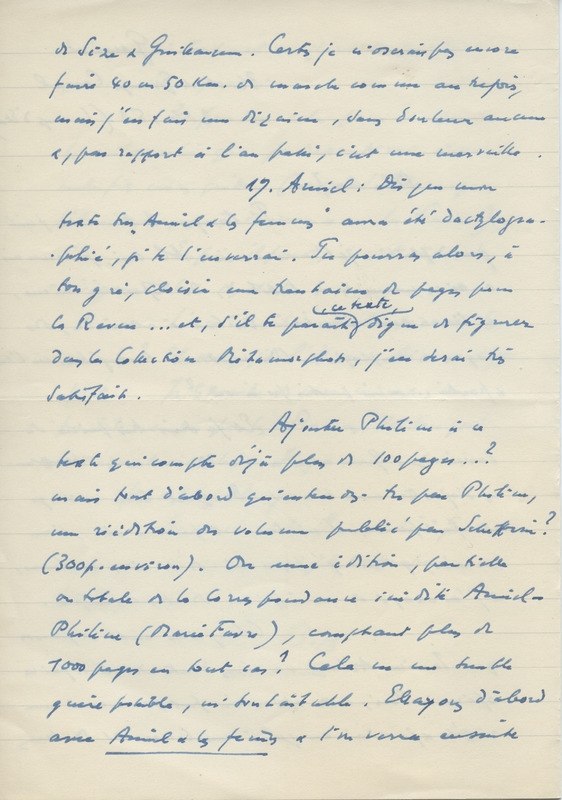 de Size & Guilhaucum. Certes je n'oserais pas encore
faire 40 ou 50 Km. de marche comme autrefois,
mais j'en fais une dizaine, sans douleur aucune
&, par rapport à l'an passé, c'est une merveille.
1º. Amiel: Dès que mon
texte sur "Amiel & les femmes" aura été dactylogra-
-phié, je te l'enverrai. Tu pourras alors, à
ton gré, choisir une trentaine de pages pour
la Revue ... et, s'il te paraît ce texte digne de figurer
dans la Collection Métamorphoses, j'en serai très
satisfait.
Ajouter Philine à ce
texte qui compte déjà plus de 100 pages...?
mais tout d'abord qu'entends-tu par Philine,
une réédition du volume publié par Schiffrin?
(300 p. environ). Ou une édition, partielle
ou totale de la correspondance inédite Amiel-
Philine (Marie Favre), comptant plus de
1000 pages en tout cas? Cela ne me semble
guère possible, ni souhaitable. Essayons d'abord
avec Amiel & les femmes & l'on verra ensuite